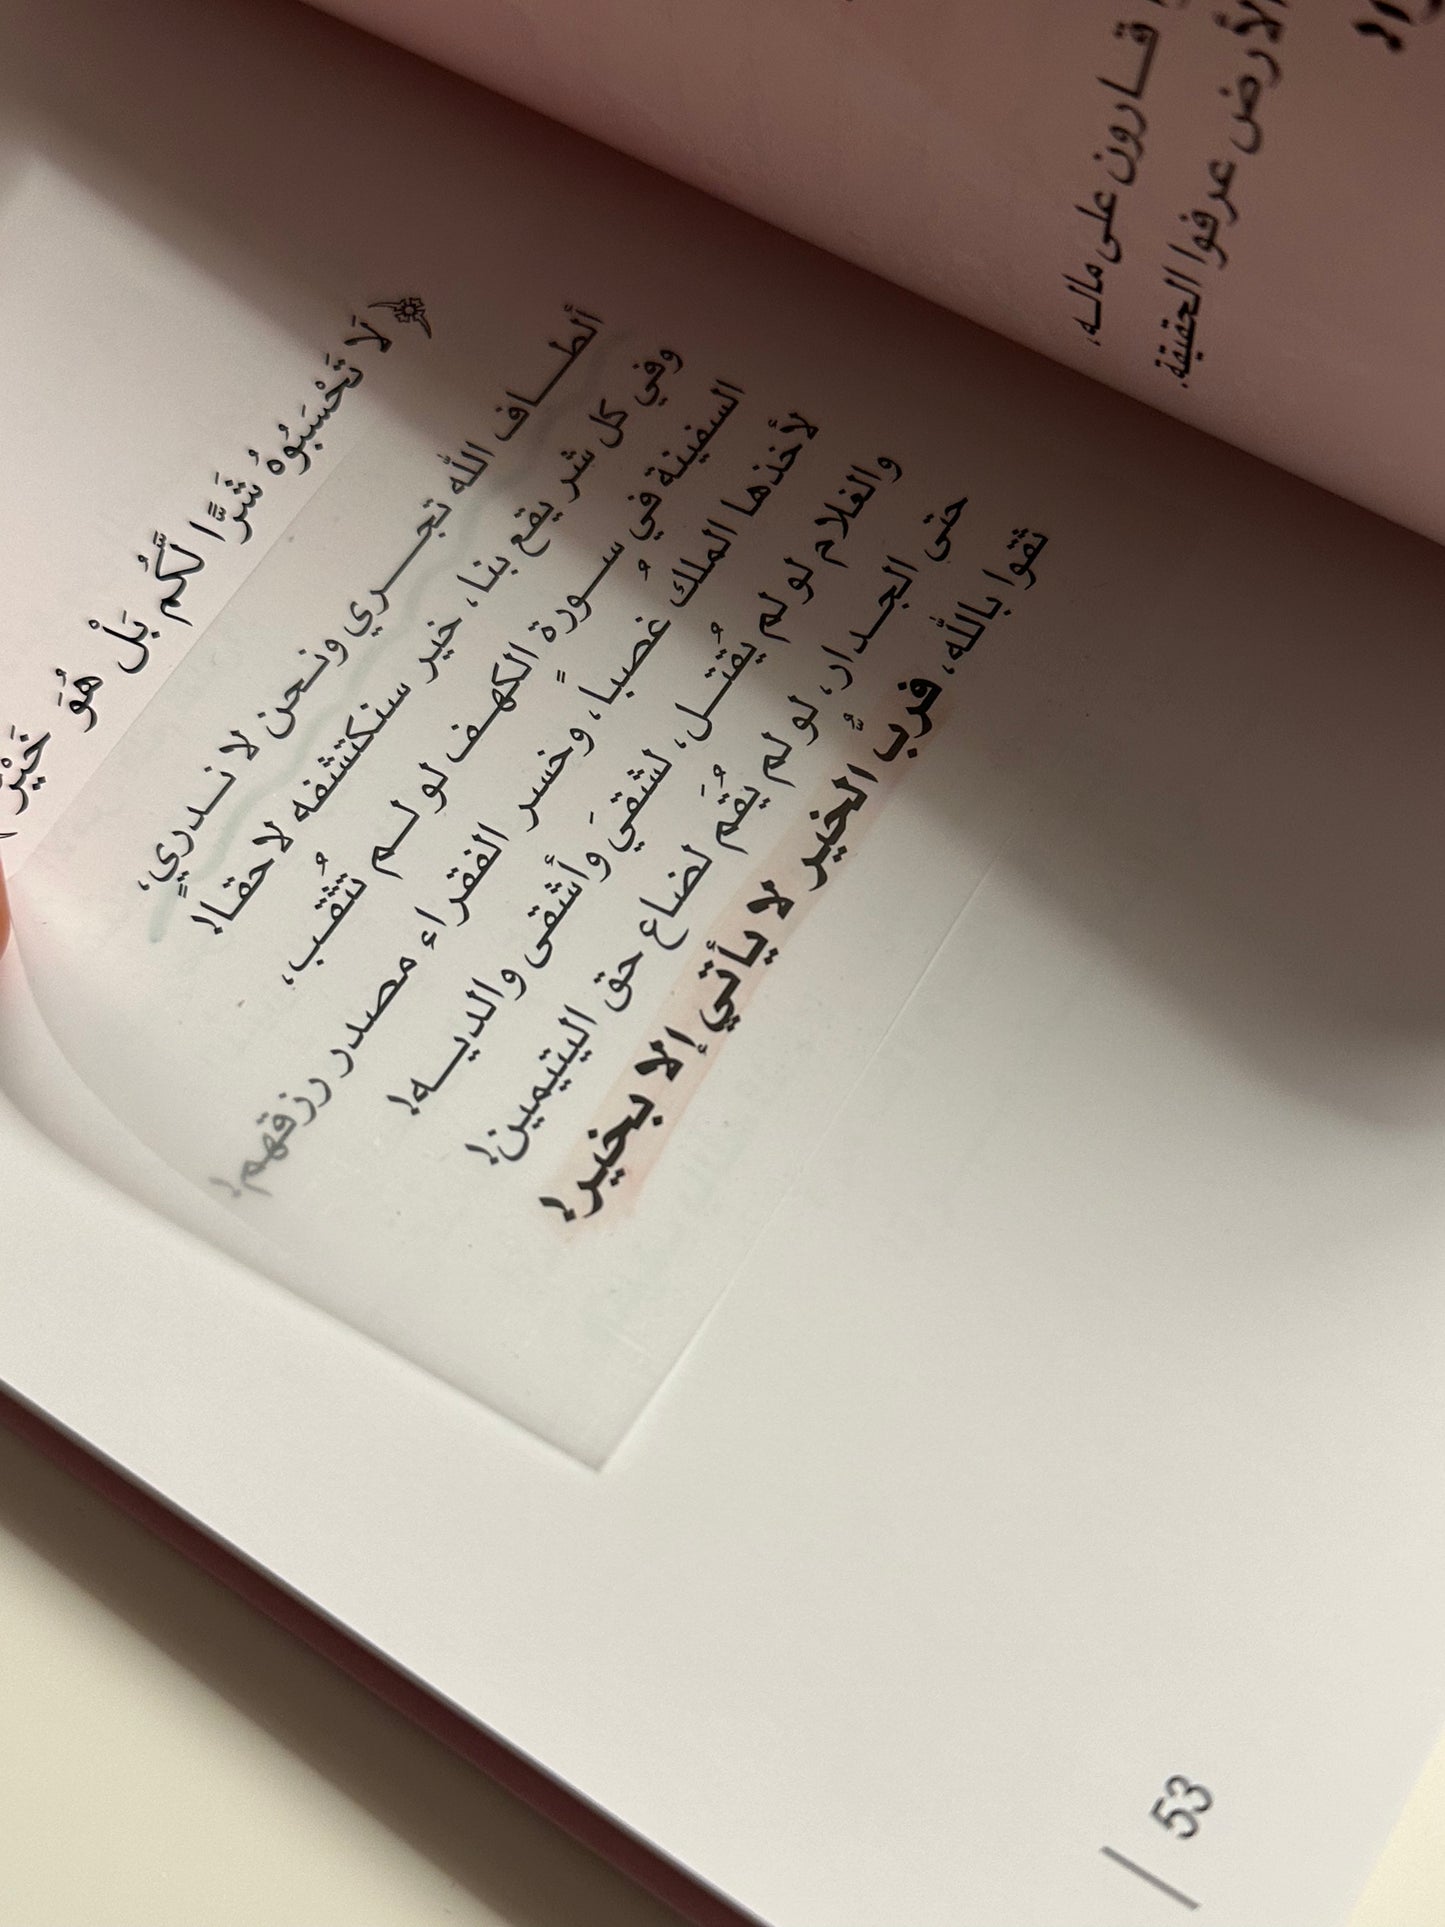 قارون على ماله،
الأرض عرفوا الحقيقة.
لَا تَحْسَبُوهُ شَرًّا لَّكُم بَلْ هُوَ خَيْرٌ
ألطاف الله تجري ونحن لا ندري،
وفي كل شرٍ يقع بنا، خير سنكتشفه لاحقا!
السفينة في سورة الكهف لو لم تُثقب،
لأخذها الملك غصباً، وخسر الفقراء مصدر رزقهم!
والغلام لو لم يُقتل، لشقيَ وأشقى والديه!
حتى الجدار، لو لم يُقَم لضاع حق اليتيمين!
ثقوا بالله، فربُّ الخير لا يأتي إلا بخير!
53